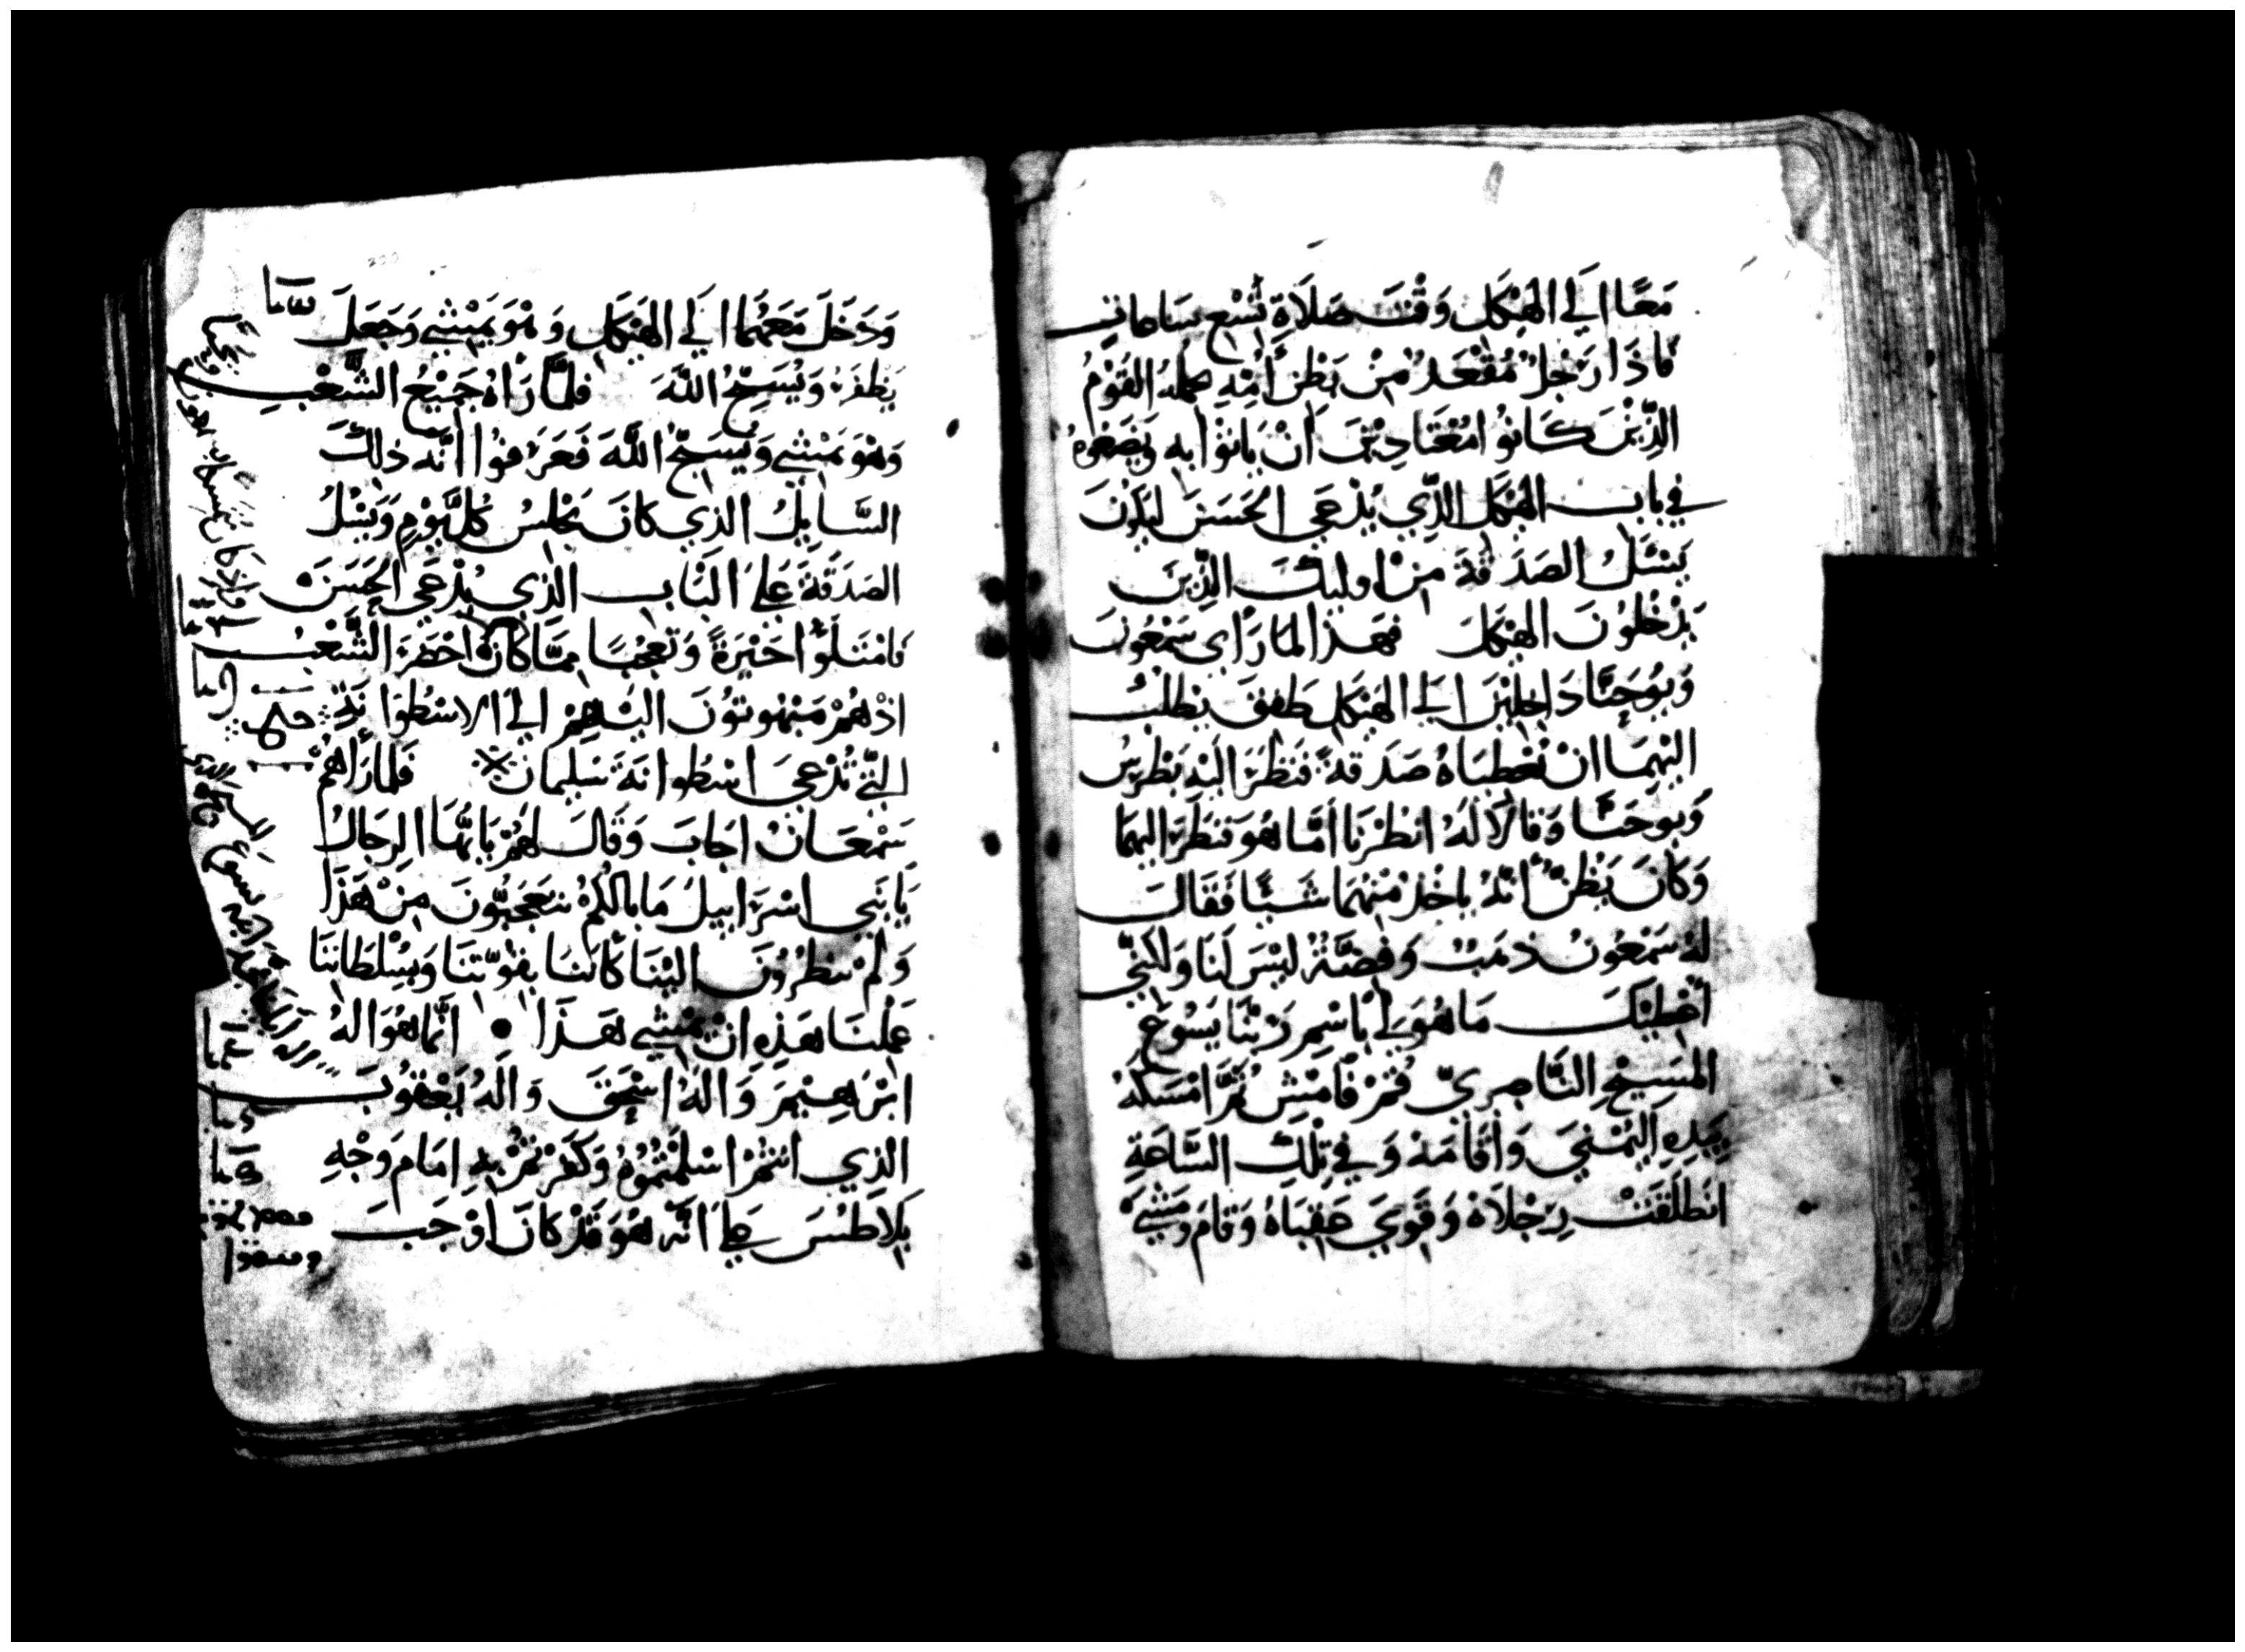 مَعًا الَي الهَيْكَلِ وَقْتَ صَلَاةِ تُسْعِ سَاعاتٍ
فَاذَا رَجُلٌ مُقْعَدٌ مِنْ بَطْنِ أُمِّهِ حملهُ القَوْمُ
الذِّيْنَ كَانُوا مُعْتَادِيْنَ اَنْ يَاتوْا بِهِ وَيَضَعُوهُ
في باب الهَيْكَلِ الذِّي يُدْعَي الحَسَنَ ليَكُوْنَ
يَسْئَلُ الصَدَقَةَ مِنْ اوليِكَ الذِّينَ
يَدْخُلُوْنَ الهَيْكَلَ فهَذا لمَا رَاَي سَمْعُونَ
وَيُوحَنَّا دَاخِلَيْنَ اِلَي الهَيْكَلِ طَفِقَ يَطلُبُ
اليْهِمَا انْ يُعْطِيَاهُ صَدَقةً فَنَظَرَ اليْهِ بَطْرِسُ
وَيُوحَنَّا وَقَالَا لَهُ انظُرْنَا أمَّا هُوَ فنَظَرَ اليهِمَا
وَكَانَ يَظُنُّ أنَّهُ يَاخُذُ مِنْهُمَا شَيًا فَقَالَ
لهُ سَمْعُونُ ذهَبٌ وَفِضَّةٌ ليْسَ لَنَا وَلَكِنّي
أُعْطِيْكَ مَا هُوَ لِي بِاسْمِ رَبّنَا يَسُوعَ
المَسِيْحِ النَّاصِريّ قُمْ فَامْشِ ثُمَّ امْسَكَهُ
بِيَدِهِ اليُمْنَي وَاَقَامَهُ وَفي تِلْكَ السَّاعَةِ
انطَلَقَتْ رِجْلَاهُ وَقَوِيَ عَقِبَاهُ وَقَامَ وَمَشَي
وَدَخَلَ مَعَهُمَا الَي الهَيْكَلِ وَهْوَ يَمْشِي وَجَعَلَ
يَطْفَرُ وَيُسَبّحُ اللَّهَ فَلمَّا رَاَهُ جَمِيْعُ الشَّعْبِ
وَهْوَ يَمْشِي وَيُسَبّحُ اللَّهَ فَعَرَفُوا اَنَّه ذلكَ
السَّايِلُ الذي كانَ يَجْلِسُ كُلَّ يَوْمٍ وَيَسْئلُ
الصَدَقَةَ عَلَي البَابِ الذِي يُدْعَي الحَسَنَ
فَامْتَلَوُا حَيْرَةً وَتَعَجُّبًا مِمَّا كَانَ احْضَرَ الشَّعْبُ
اذْ هُمْ مَبْهُوتوُنَ اليْهِمْ الَي الاسْطُوَانَةِ
التّي تُدْعَي اسْطُوانَةَ سُلَيمَانَ ※ فَلمَا رَاهُمْ
سَمْعَانُ اجَابَ وَقَالَ لهُمْ يَا يُّهَا الرِجَالُ
يَا بَنِي اسْرَايِيلَ مَا بَالُكُمْ تتَعَجَبُّونَ مِنْ هَذَا
وَلِمْ تنظُرُونَ اليْنَا كَاَننَا بِقُوّتنَا وَبِسُلْطَانِنَا
عَمِلْنَا هَذِهِ انْ يَمْشِي هَذَا • انَّمَا هُوَ الهُ
ابْرَهِيْمَ وَالهُ اسْحَقَ وَالَهُ يَعْقُوبَ
الذِي انْتمْ اسْلَمْتُمُوهُ وَكَفَرْتُمْ بِهِ امَامَ وَجْهِ
بِلَاطُسَ عَلَي اَنَّه هُوَ قَدْ كَانَ اوْجَبَ